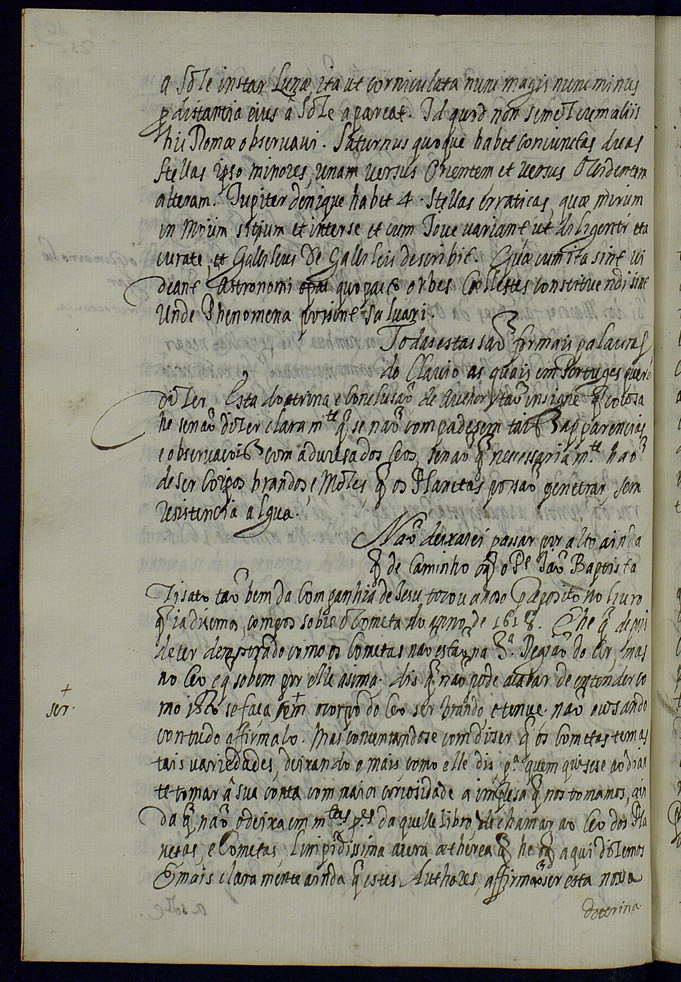 a Sole instar Lunæ ita ut corniculata nunc magis nunc minus
p distantia eius â Sole apareat. Id quod non semel cum aliis
hic Romæ observavi. Saturnus quoque habet coniunctas duas
stellas ipso minores, unam versus Orientem et versus Occidentem
alteram. Jupiter denique habet 4. stellas erraticas, quæ mirum
in modum situm et inter se et cum Iove variant ut diligenter et a
curate, Galileus de Galileis describit. Quæ cum ita sint vi
deant Astronomi quo pacto orbes Cælestes constituendi sint
unde Phenomena possint salvari.
Todas estas saõ firmais palavras
do Clavio as quais em Portuges quere
dizer Esta doctrina e conclusaõ de Author taõ insigne q̃ cousa
he senaõ dizer claram.te q̃ se naõ compadesem tais apparencias
e observaçois com a dureza dos Ceos, senaõ q̃ necessariam.te haõ
de ser Corpos brandos e Moles q̃ os Planetas possaõ penetrar sem
resistencia algua.
Naõ deixarei passar por alto ainda
q̃ de Caminho q̃ o P.e Joaõ Baptista
Zisato taõ bem da Companhia de Jesu tocou a no Livro
q̃ ia disemos, compos sobre o Cometa do anno de 1618. E he q̃ depois
de ter demostrado como os Cometas naõ estaõ na 3.a Regiaõ do Ar, mas
no Ceo e q̃ sobem por elle asima. dis q̃ naõ pode acabar de entender co
mo isto se faça sem o corpo do Ceo ser brando e tenue. naõ ousando
contudo affirmalo. Mas contentandose com diser q̃ os Cometas tem as
tais variedades, deixando o mais, como elle dis p.a quem quisese
te tomar â sua conta com maior curiosidade a impresa q̃ nos tomamos, ain
da q̃ naõ odeixa em m.tas p.tes daquelle libro de chamar ao Ceo dos Pla
netas, e Cometas, limpidissima aura ætherea q̃ he q̃ aqui disemos
E mais claramente ainda q̃ estes Authores, affirmaõ ser esta nova
doctrina
+
ser.